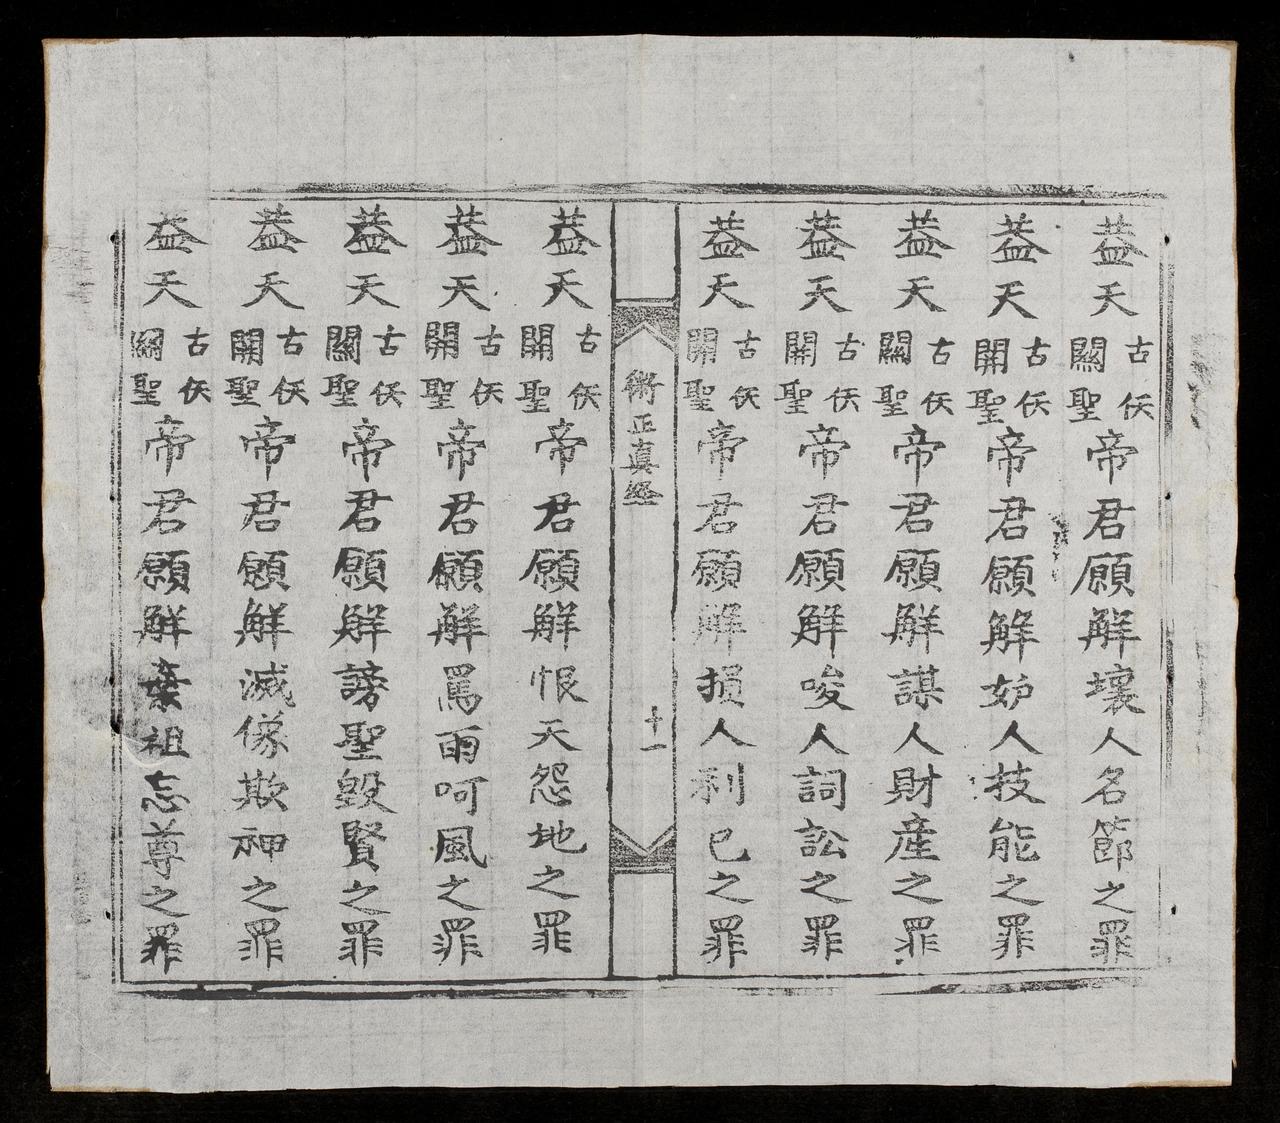 葢天古仸關聖帝君願觧壞人名節之罪
葢天古仸開聖帝君願觧妒人技能之罪
葢天古仸關聖帝君願觧謀人財產之罪
葢天古仸開聖帝君願觧唆人詞訟之罪
葢天古仸開聖帝君願觧損人利己之罪
衛正真經 十一
葢天古仸開聖帝君願觧恨天怨地之罪
葢天古仸開聖帝君願觧罵雨呵風之罪
葢天古仸關聖帝君願觧謗聖毀賢之罪
葢天古仸開聖帝君願觧滅像欺神之罪
葢天古仸關聖帝君願觧棄祖忘尊之罪